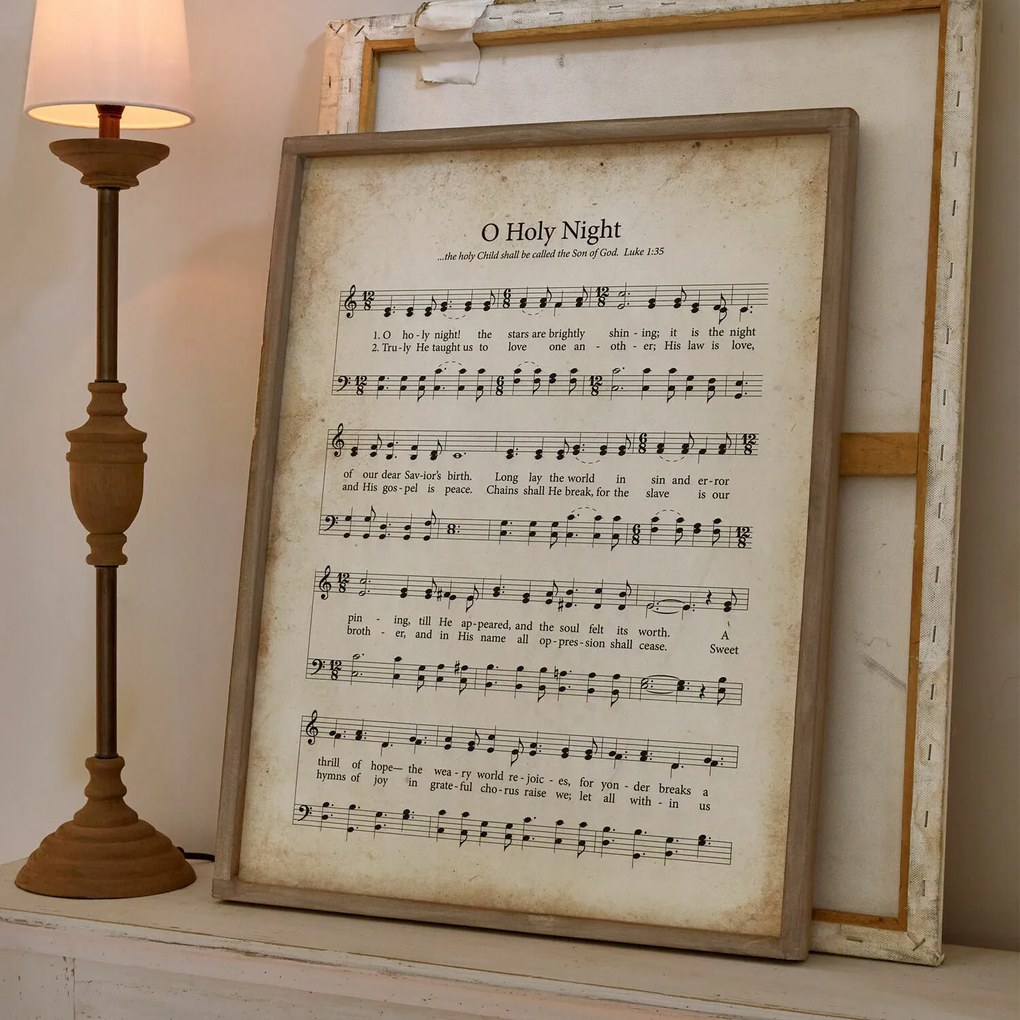 O Holy Night
...the holy Child shall be called the Son of God. Luke 1:35
12 8 6 8 12 8
1. O ho - ly night! the stars are brightly shin - ing; it is the night
2. Tru - ly He taught us to love one an - oth - er; His law is love,
12 8 6 8 12 8
6 8 12 8
of our dear Sav - ior's birth. Long lay the world in sin and er - ror
and His gos - pel is peace. Chains shall He break, for the slave is our
6 8 12 8
12 8
pin - ing, till He ap - peared, and the soul felt its worth. A
broth - er, and in His name all op - pres - sion shall cease. Sweet
12 8
thrill of hope— the wea - ry world re - joic - es, for yon - der breaks a
hymns of joy in grate - ful cho - rus raise we; let all with - in us